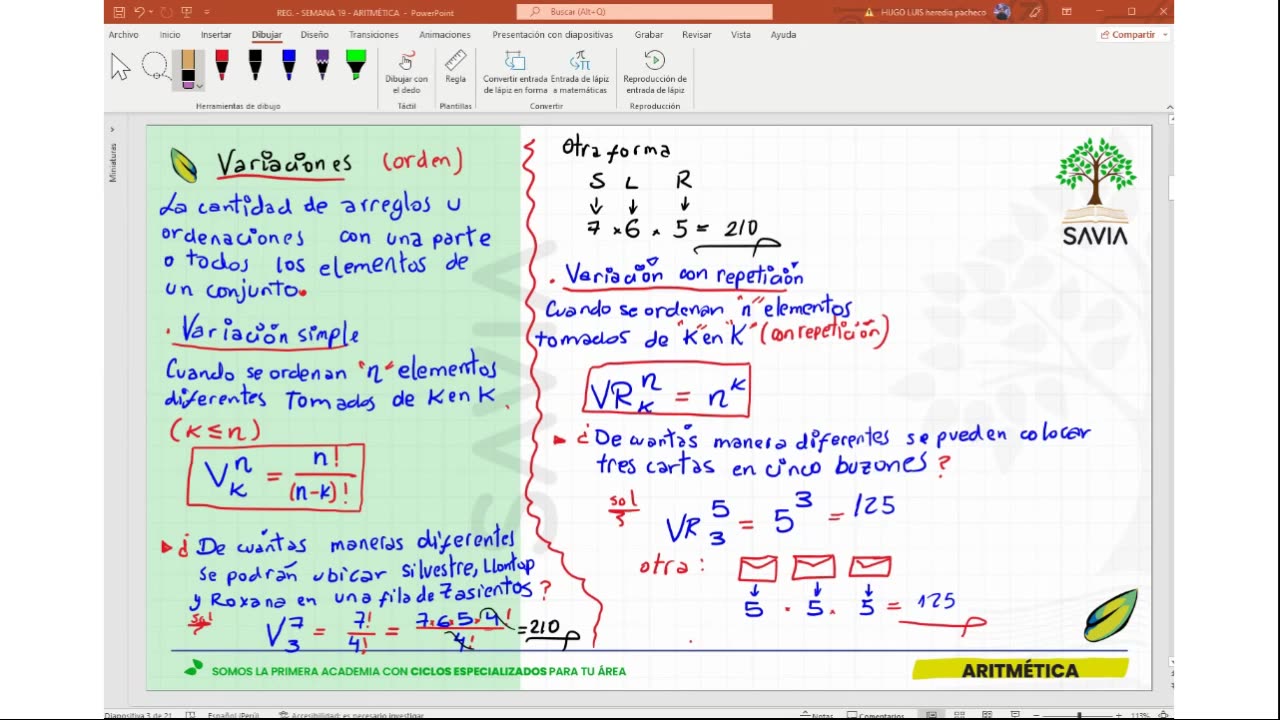 REG. - SEMANA 19 - ARITMÉTICA - PowerPoint
Buscar (Alt+Q)
HUGO LUIS heredia pacheco
Archivo Inicio Insertar Dibujar Diseño Transiciones Animaciones Presentación con diapositivas Grabar Revisar Vista Ayuda
Compartir
Dibujar con el dedo
Regla
Convertir entrada de lápiz en forma
Entrada de lápiz a matemáticas
Reproducción de entrada de lápiz
Herramientas de dibujo Táctil Plantillas Convertir Reproducción
Miniaturas
Variaciones (orden)
La cantidad de arreglos u
ordenaciones con una parte
o todos los elementos de
un conjunto.
. Variación simple
Cuando se ordenan "n" elementos
diferentes Tomados de K en K.
(K ≤ n)
V^n_K = n!/(n-k)!
¿De cuántas maneras diferentes
se podrán ubicar Silvestre, Llontop
y Roxana en una fila de 7 asientos?
sol
V^7_3 = 7!/4! = 7.6.5.4!/4! = 210
Otra forma
S L R
↓ ↓ ↓
7 × 6 × 5 = 210
. Variación con repetición
Cuando se ordenan "n" elementos
tomados de "K" en "K" (con repetición)
VR^n_K = n^K
¿De cuantás manera diferentes se pueden colocar
tres cartas en cinco buzones?
sol
VR^5_3 = 5^3 = 125
otra:
↓ ↓ ↓
5 . 5 . 5 = 125
SAVIA
SAVIA
SOMOS LA PRIMERA ACADEMIA CON CICLOS ESPECIALIZADOS PARA TU ÁREA
ARITMÉTICA
Diapositiva 3 de 21 Español (Perú) Accesibilidad: es necesario investigar Notas Comentarios 113%